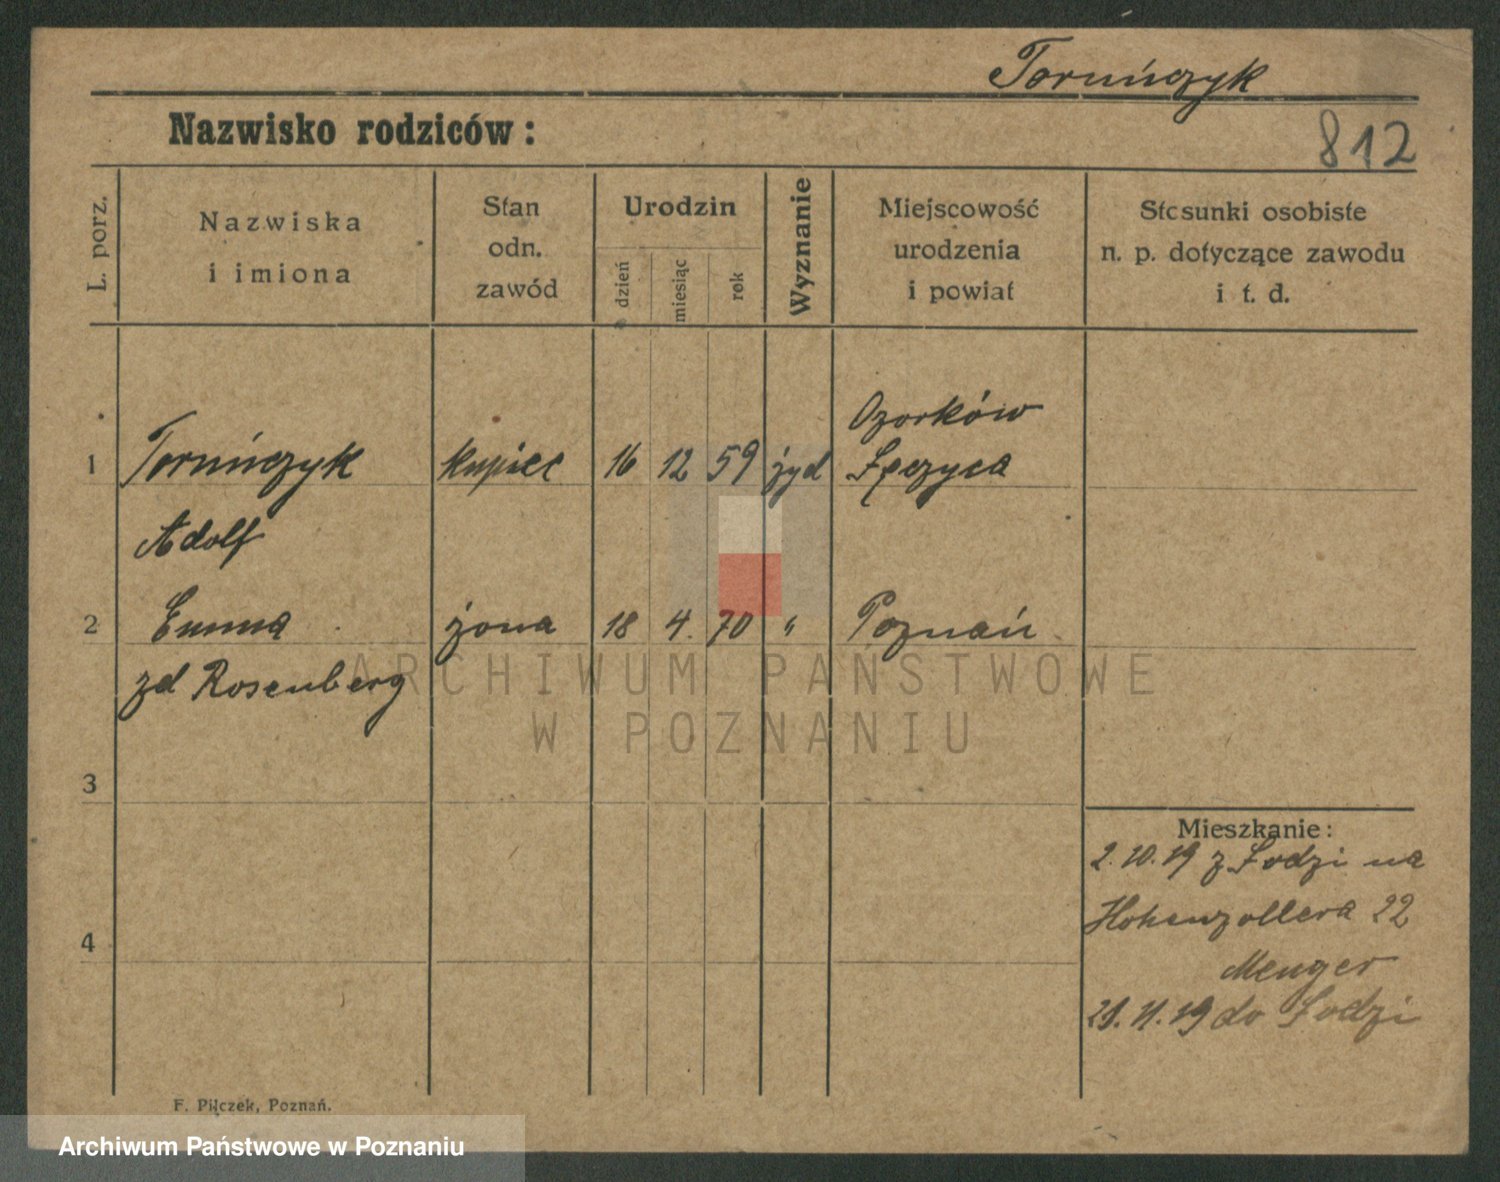 Toruńczyk
Nazwisko rodziców:
812
L. porz.
Nazwiska
i imiona
Stan
odn.
zawód
Urodzin
dzień
miesiąc
rok
Wyznanie
Miejscowość
urodzenia
i powiat
Stosunki osobiste
n. p. dotyczące zawodu
i t. d.
Ozorków
1 Toruńczyk kupiec 16 12 59 żyd Łęczyca
Adolf
2 Emma żona 18 4. 70 " Poznań
zd Rosenberg
ARCHIWUM PAŃSTWOWE
W POZNANIU
3
Mieszkanie:
2.10.19 z Łodzi na
Hohenzollera 22
4
Menger
21.11.19 do Łodzi
F. Pilczek, Poznań.
Archiwum Państwowe w Poznaniu